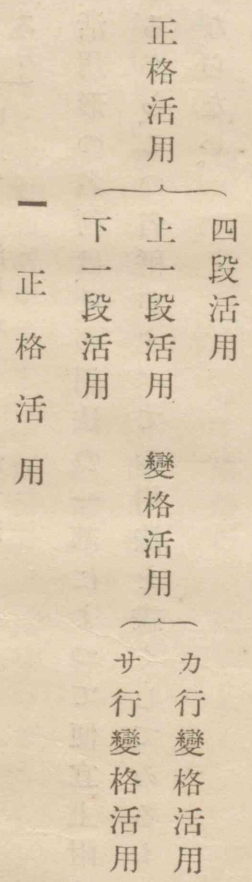 正格活用
四段活用
上一段活用
下一段活用
變格活用
カ行變格活用
サ行變格活用
一 正格活用